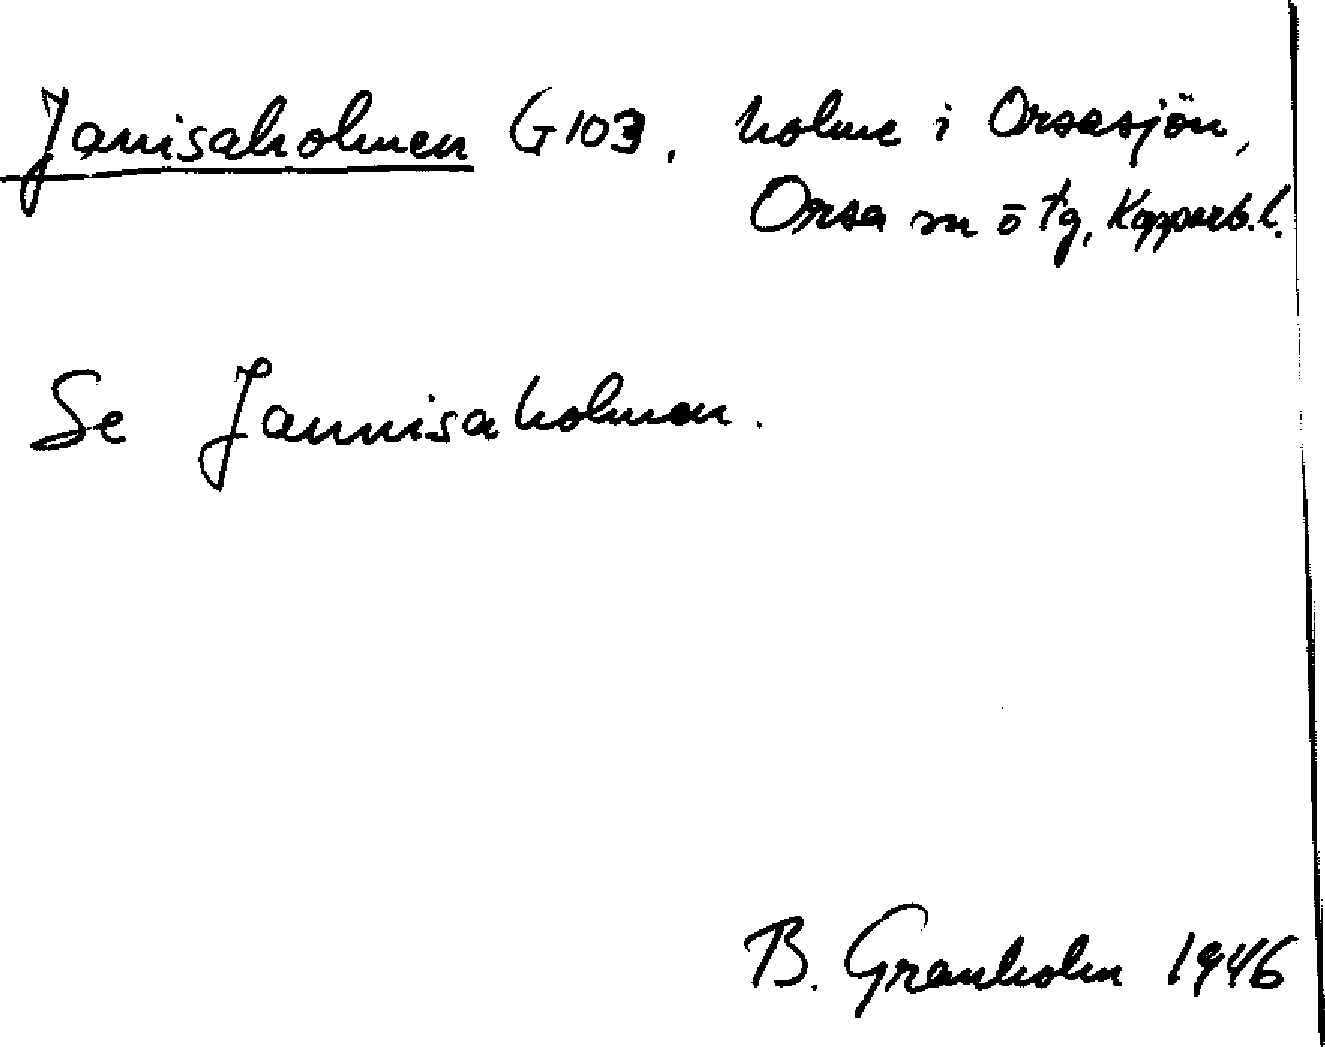 Janisaholmen G 103. holme i Orsasjön,
Orsa sn ö tg, Kopparb. l.
Se Jannisaholmen.
B. Granholm 1946